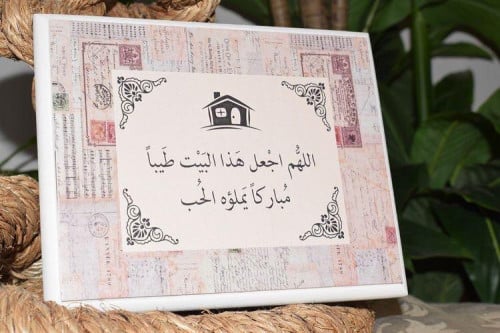 اللهُم اجْعل هَذا البَيْت طَيباً
مُباركاً يملؤه الحُب